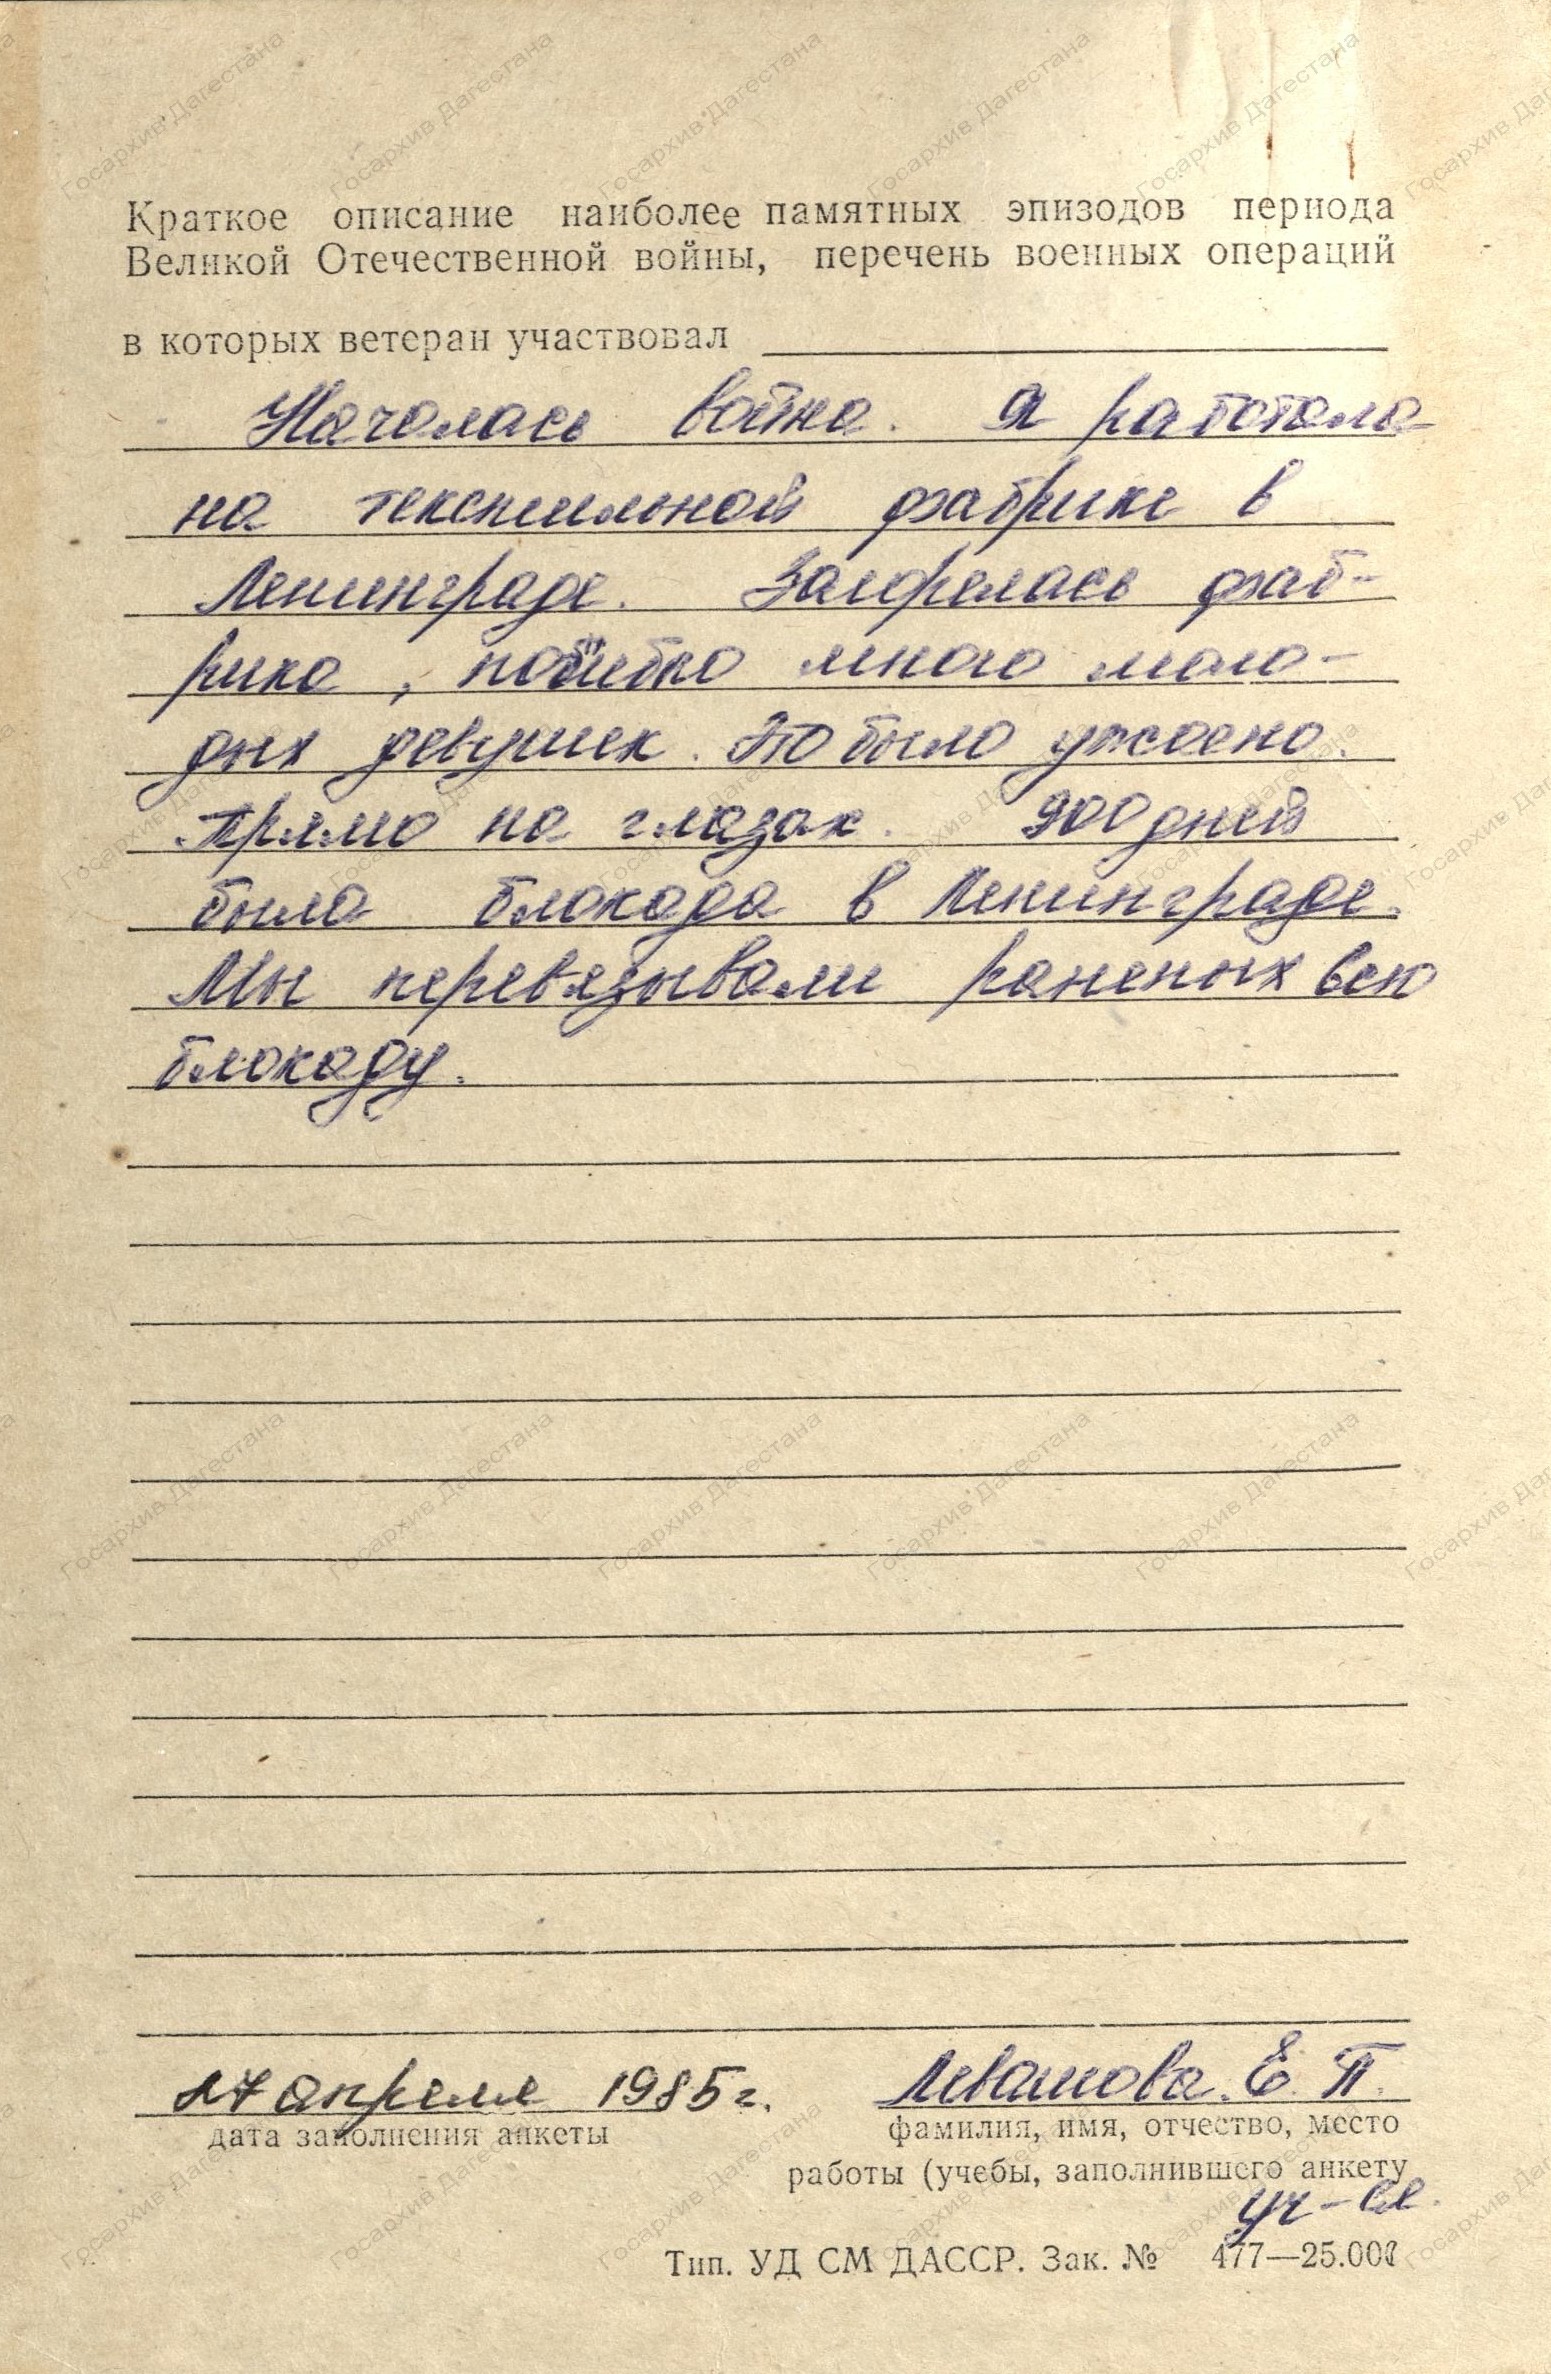 Краткое описание наиболее памятных эпизодов периода
Великой Отечественной войны, перечень военных операций
в которых ветеран участвовал
Началась война. Я работала
на текстильной фабрике в
Ленинграде. Загорелась фаб-
рика, погибло много моло-
дых девушек. Это было ужасно.
прямо на глазах. 900 дней
была блокада в Ленинграде.
Мы перевязывали раненых всю
блокаду.
27 апреля 1985 г. Левашова Е. П.
дата заполнения анкеты фамилия, имя, отчество, место
работы (учебы, заполнившего анкету
уч-ся.
Тип. УД СМ ДАССР. Зак. № 477—25.000
Госархив Дагестана